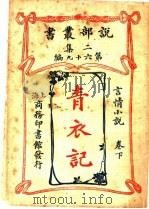 說部叢書
二集
第六十九編
言情小說 卷下
青衣記
上海商務印書館發行